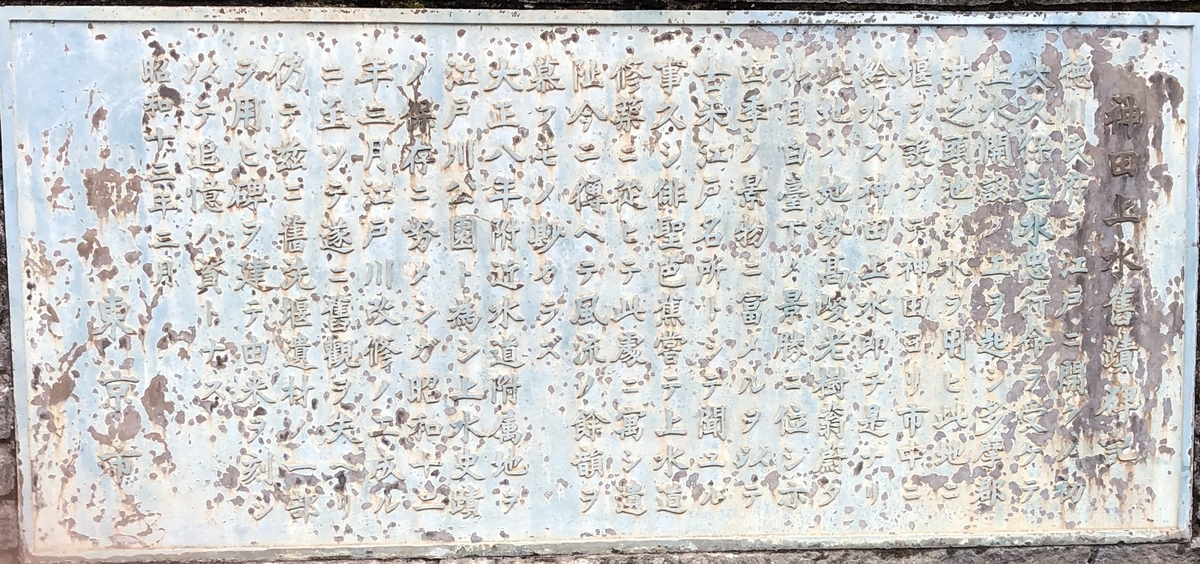 神田上水舊蹟碑記
徳川氏府ヲ江戸ニ開クノ初
大久保主水忠行命ヲ受ケテ
上水開鑿ノ工ヲ起シ多摩郡
井之頭池ノ水ヲ用ヒ此地ニ
堰ヲ設ケテ神田ヨリ市中ニ
給水ス神田上水即チ是ナリ
此地ハ地勢高峻老樹蓊蔚タ
ル目白臺下ノ景勝ニ位シ亦
四季ノ景物ニ富メルヲ以テ
古来江戸名所トシテ聞ユル
事久シ俳聖芭蕉嘗テ上水道
修築ニ從ヒテ此處ニ寓シ遺
阯今ニ傳ヘテ風流ノ餘韻ヲ
慕フモノ尠カラズ
大正八年附近水道附属地ヲ
江戸川公園ト為シ上水史蹟
ノ保存ニ努メシガ昭和十二
年三月江戸川改修ノ工成ル
ニ至ツテ遂ニ舊観ヲ失ヘリ
仍テ茲ニ舊洗堰遺材ノ一部
ヲ用ヒ碑ヲ建テ由来ヲ刻シ
以テ追憶ノ資トナス
昭和十三年三月
東京市